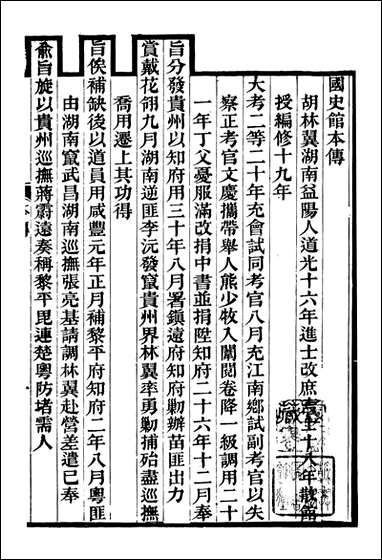 國史館本傳
胡林翼湖南益陽人道光十六年進士改庶吉士十八年散館
授編修十九年
大考二等二十年充會試同考官八月充江南鄉試副考官以失
察正考官文慶攜帶舉人熊少牧入闈閱卷降一級調用二十
一年丁父憂服滿改捐中書並捐陞知府二十六年十二月奉
旨分發貴州以知府用三十年八月署鎮遠府知府勦辦苗匪出力
賞戴花翎九月湖南逆匪李沅發竄貴州界林翼率勇勦捕殆盡巡撫
喬用遷上其功得
旨俟補缺後以道員用咸豐元年正月補黎平府知府二年八月粵匪
由湖南竄武昌湖南巡撫張亮基請調林翼赴營差遣已奉
兪旨旋以貴州巡撫蔣霨遠奏稱黎平毘連楚粵防堵需人